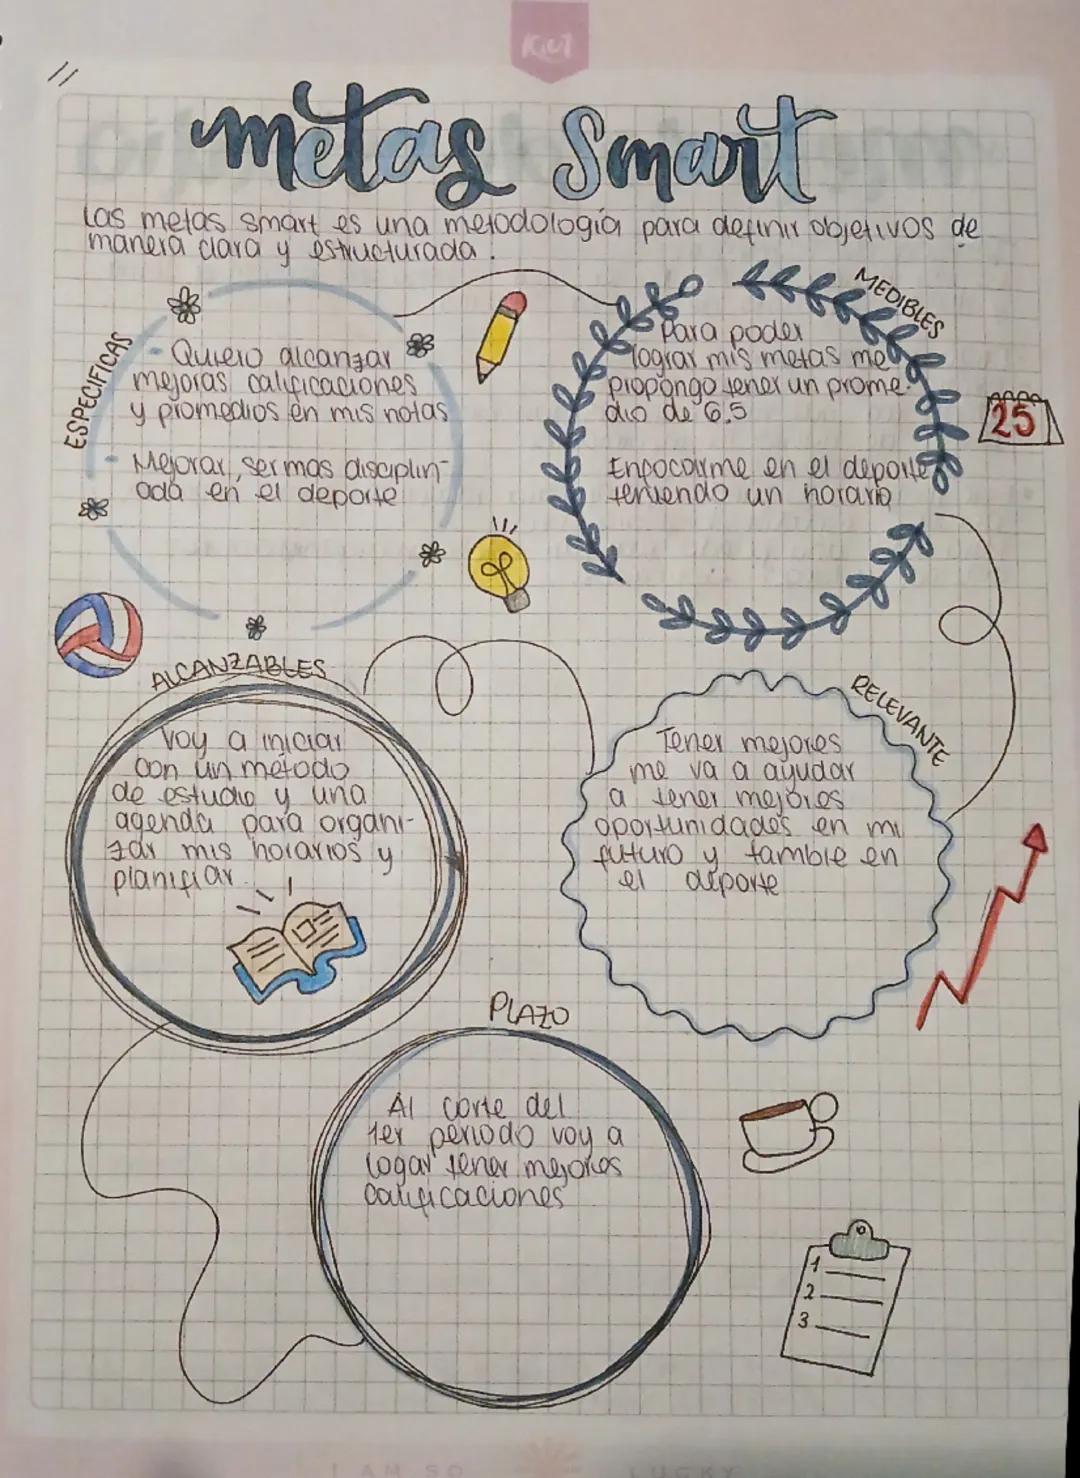 Kiut
metas smart
Las metas smart es una metodología para definir objetivos de
manera clara y estructurada.
ESPECIFICAS
- Quiero alcanzar
mejoras calificaciones
y promedios en mis notas
- Mejorar, ser mas disciplin-
ada en el deporte
MEDIBLES
Para poder
lograr mis metas me
propongo tener un prome-
dio de 6,5
Enfocarme en el deporte
teniendo un horario
25
ALCANZABLES
Voy a iniciar
con un método
de estudio y una
agenda para organi-
zar mis horarios y
planifiar
RELEVANTE
Tener mejores
me va a ayudar
a tener mejores
oportunidades en mi
futuro y tambie en
el deporte
PLAZO
Al corte del
1er periodo voy a
logar tener mejores
calificaciones
1
2
3
I AM SO LUCKY